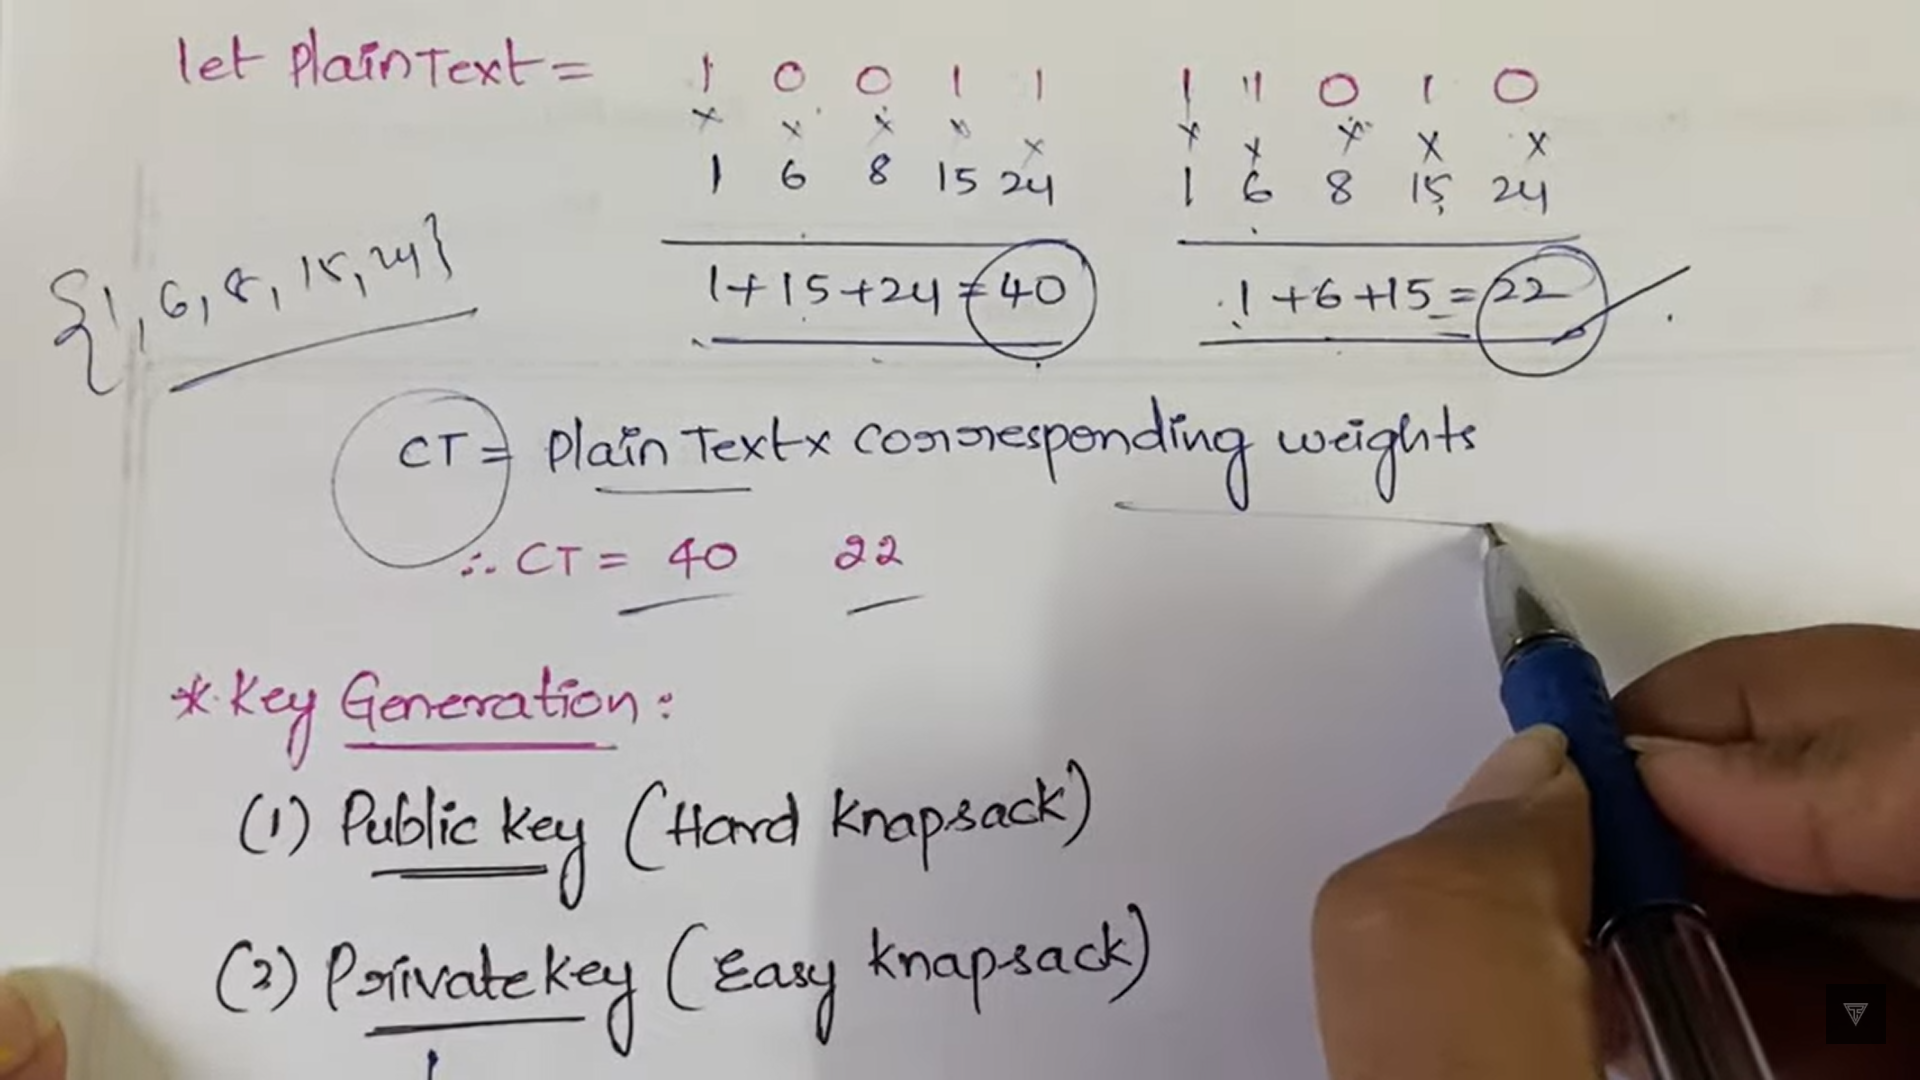 let PlainText = 1 0 0 1 1 1 1 0 1 0
x x x x x x x x x x
1 6 8 15 24 1 6 8 15 24
{1, 6, 8, 15, 24}
1+15+24=40 1+6+15=22
CT = Plain Text x corresponding weights
∴ CT = 40 22
* Key Generation:
(1) Public key (Hard knapsack)
(2) Private key (Easy knapsack)